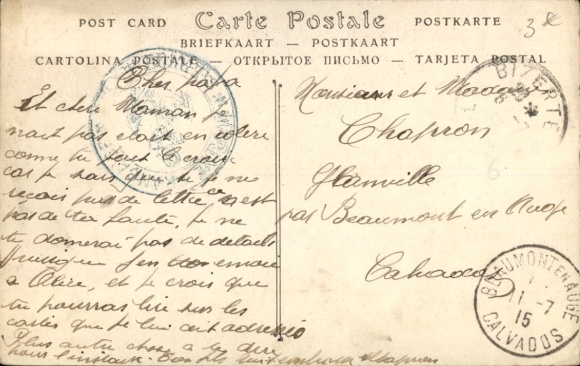 POST CARD Carte Postale POSTKARTE
BRIEFKAART — POSTKAART
CARTOLINA POSTALE — ОТКРЫТОЕ ПИСЬМО — TARJETA POSTAL
3
BIZERTE
Cher papa
Et cher Maman
pas était en colère
comme tu peut le croire
car je sais que si je ne
reçois pas de lettre, ce n'est
pas de ta faute, je ne
te donnerai pas de details
puisque j'en
à , et je crois que
tu pourras lire sur les
cartes que je lui ait adressé
Plus autre chose a te dire
pour l'instant. Ton fils Chapron
Monsieur et Madame
Chapron
Glanville
par Beaumont en Auge
Calvados
BEAUMONT EN AUGE
11-7
15
CALVADOS